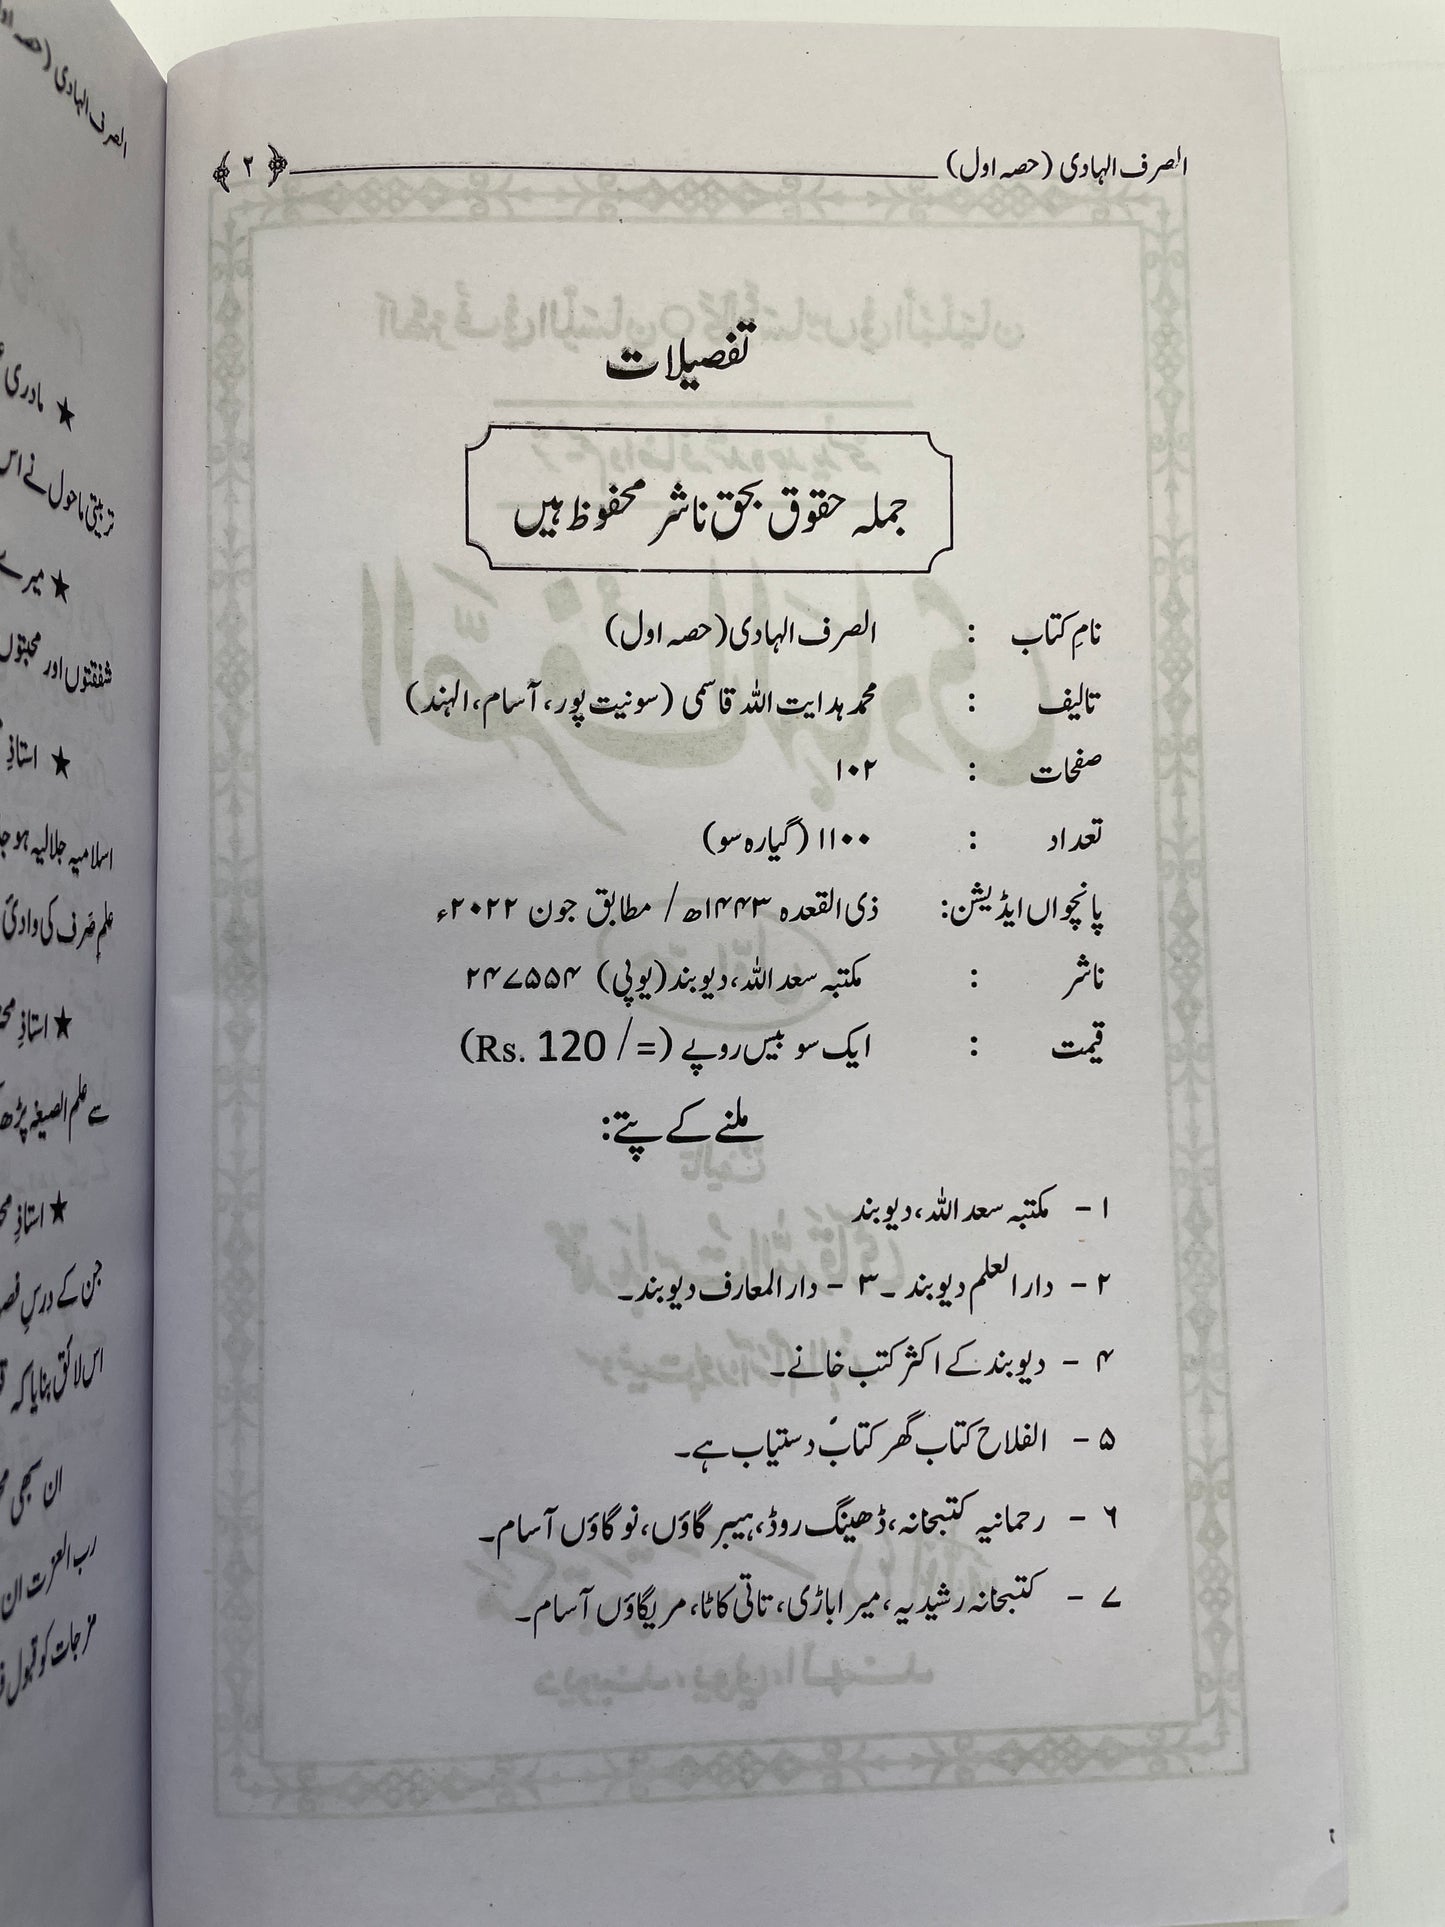 الصرف الہادی (حصہ اول) ﴿ ۲ ﴾
تفصیلات
جملہ حقوق بحق ناشر محفوظ ہیں
نامِ کتاب : الصرف الہادی (حصہ اول)
تالیف : محمد ہدایت اللہ قاسمی (سونیت پور، آسام، الہند)
صفحات : ۱۰۲
تعداد : ۱۱۰۰ (گیارہ سو)
پانچواں ایڈیشن: ذی القعدہ ۱۴۴۳ھ/ مطابق جون ۲۰۲۲ء
ناشر : مکتبہ سعد اللہ، دیوبند (یوپی) ۲۴۷۵۵۴
قیمت : ایک سو بیس روپے (Rs. 120 /=)
ملنے کے پتے:
۱ - مکتبہ سعد اللہ، دیوبند
۲ - دار العلم دیوبند ۔ ۳ - دار المعارف دیوبند۔
۴ - دیوبند کے اکثر کتب خانے۔
۵ - الفلاح کتاب گھر کتاب دستیاب ہے۔
۶ - رحمانیہ کتبخانہ، ڈھینگ روڈ، ہیبر گاؤں، نوگاؤں آسام۔
۷ - کتبخانہ رشیدیہ، میراباڑی، تاتی کاٹا، مریگاؤں آسام۔
الصرف الہادی (حصہ اول
★ مادری
تربیتی ماحول نے اس
★ میرے
شفقتوں اور محبتوں
★ استاذِ
اسلامیہ جلالیہ ہوجا
علمِ صرف کی وادیٔ
★ استاذِ
سے علم الصیغہ پڑھ
★ استاذِ
جن کے درسِ
اس لائق بنایا کہ
ان سبھی
رب العزت ان
کو قبول